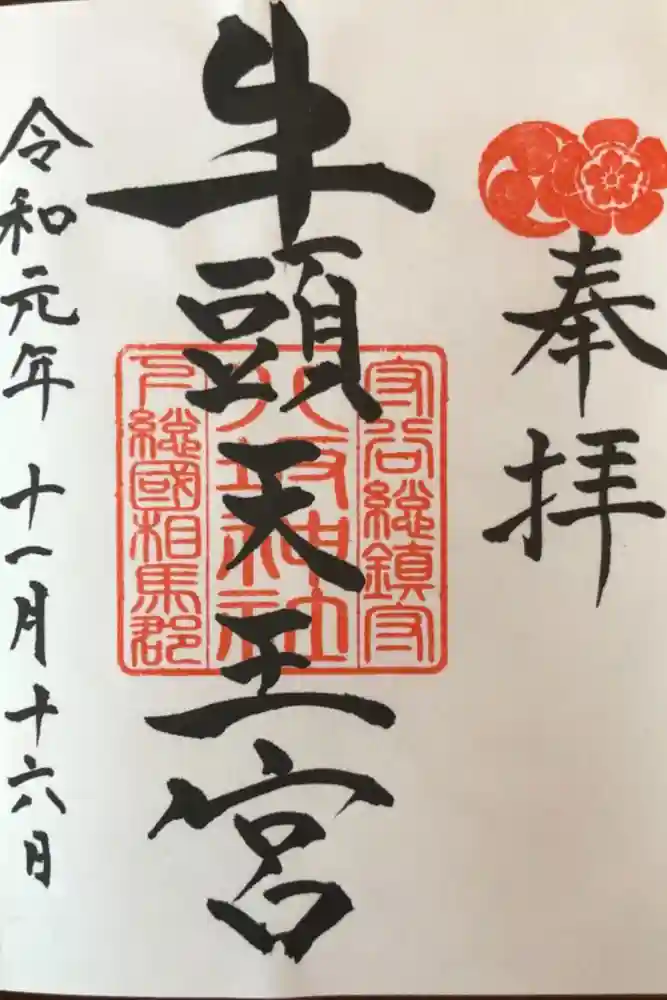 奉拝
牛頭天王宮
守谷総鎮守
八坂神社
下総國相馬郡
令和元年 十一月十六日